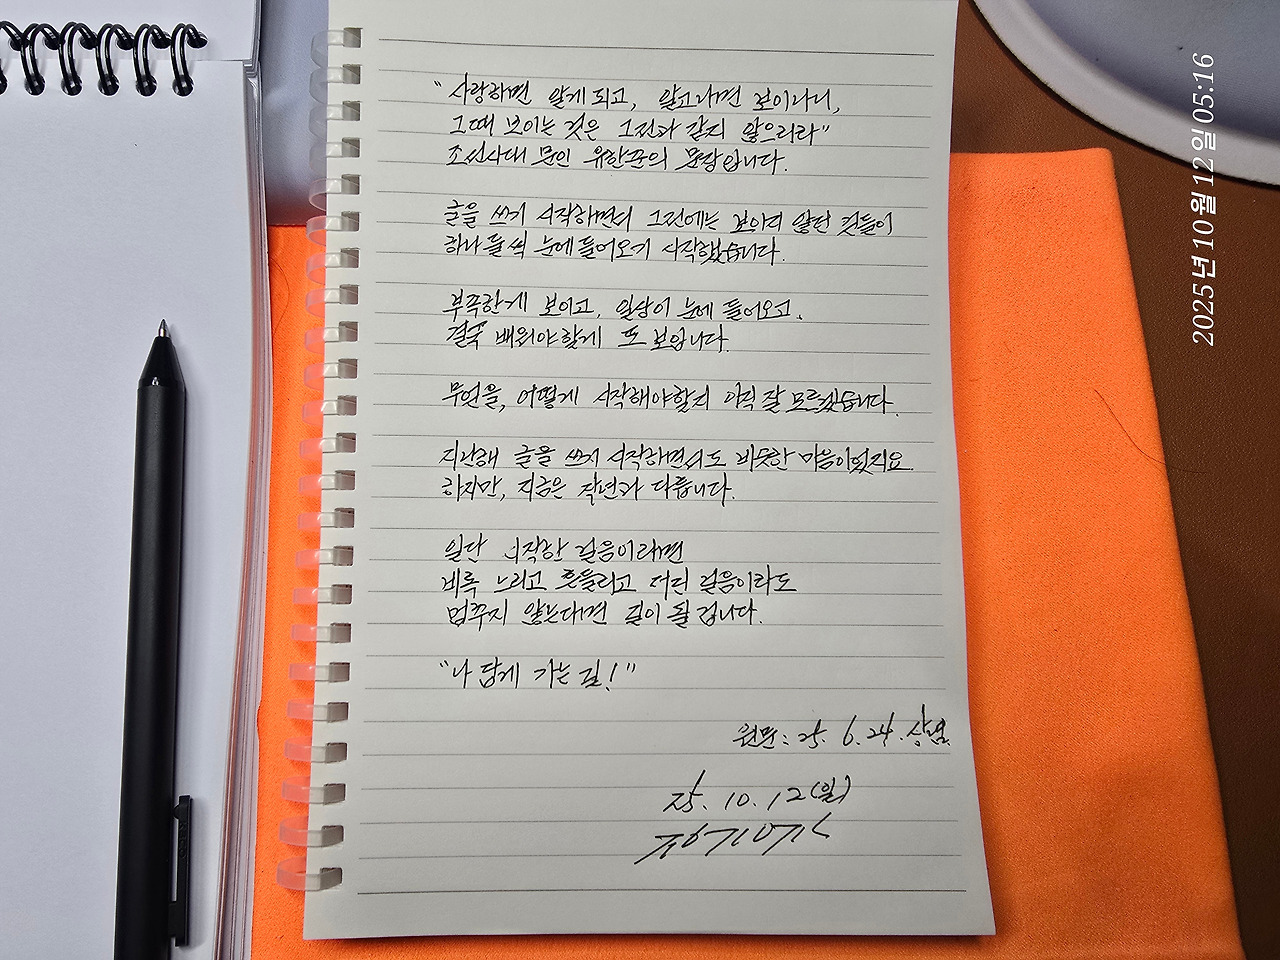 "사랑하면 알게 되고, 알고나면 보이나니,
그때 보이는 것은 그전과 같지 않으리라"
조선시대 문인 유한준의 문장입니다.
글을 쓰기 시작하면서 그전에는 보이지 않던 것들이
하나 둘씩 눈에 들어오기 시작했습니다.
부족한게 보이고, 일상이 눈에 들어오고,
결국 배워야할게 또 보입니다.
무엇을, 어떻게 시작해야할지 아직 잘 모르겠습니다.
지난해 글을 쓰기 시작하면서도 비슷한 마음이었지요.
하지만, 지금은 작년과 다릅니다.
일단 시작한 걸음이라면
비록 느리고 흔들리고 저린 걸음이라도
멈추지 않는다면 길이 될 겁니다.
"나 답게 가는 길!"
원문: 25. 6. 24.
25. 10. 12 (일)
2025년 10월 12일 05:16